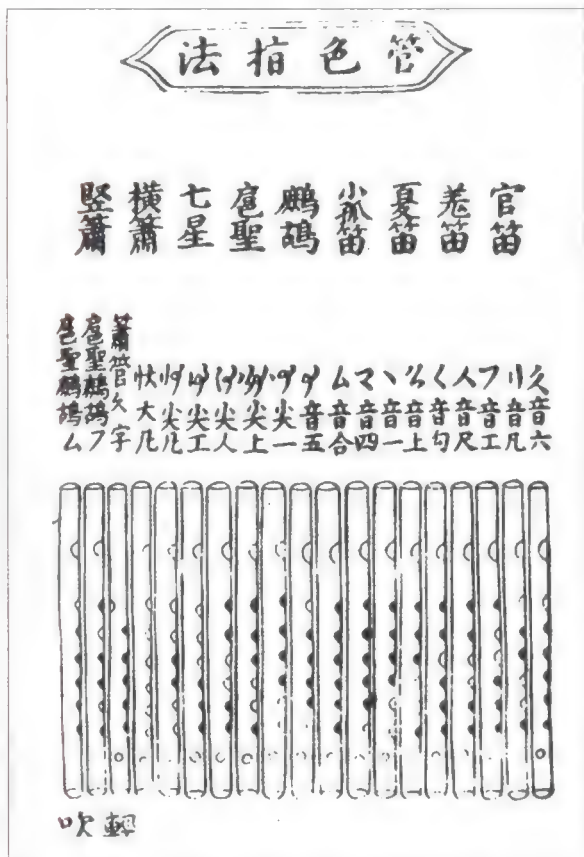 管色指法
官笛
羌笛
夏笛
小孤笛
鷓鴣
扈聖
七星
橫簫
竪簫
久音六
リ音凡
フ音工
人音尺
く音勾
么音上
丶音一
マ音四
ム音合
音五
尖一
尖上
尖人
尖工
尖凡
大凡
簫管久字
扈聖鷓鴣フ
扈聖鷓鴣ム
輕吹